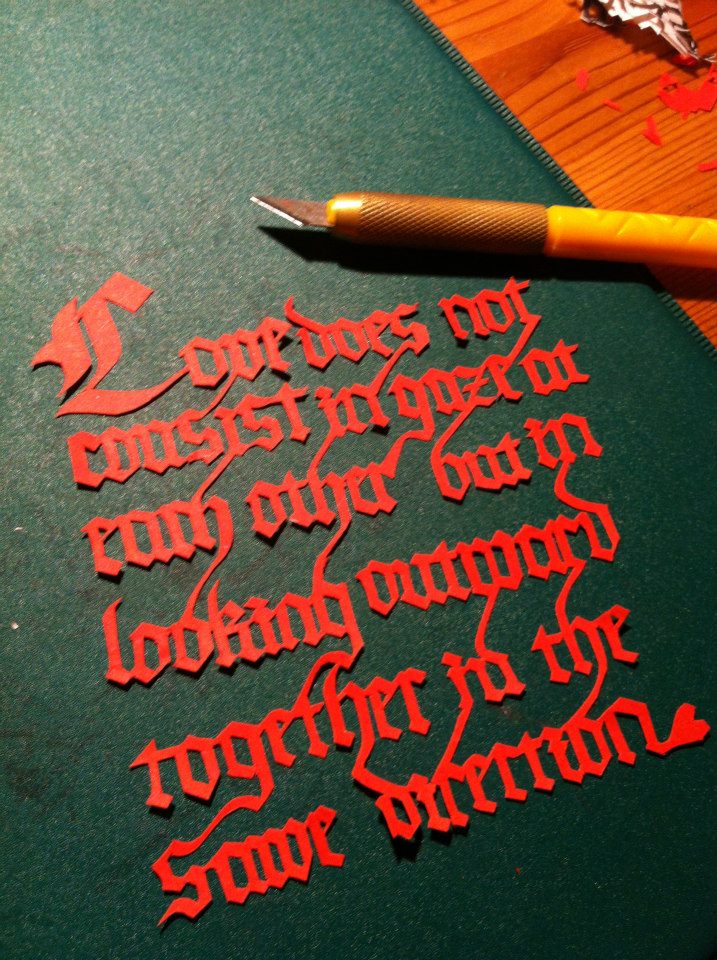 Love does not
consist in gaze at
each other but in
looking outward
together in the
same direction